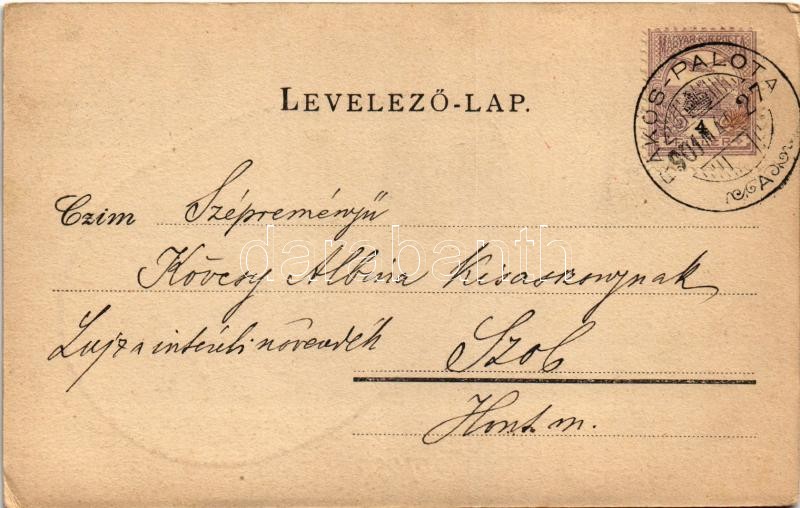 MAGYAR KIR. POSTA
RÁKOS-PALOTA
27
A
LEVELEZŐ-LAP.
Czim Szépreményű
darabanth
Kövesy Albina Kisasszonynak
Lujza intézeti növendék Szob
Hont m.